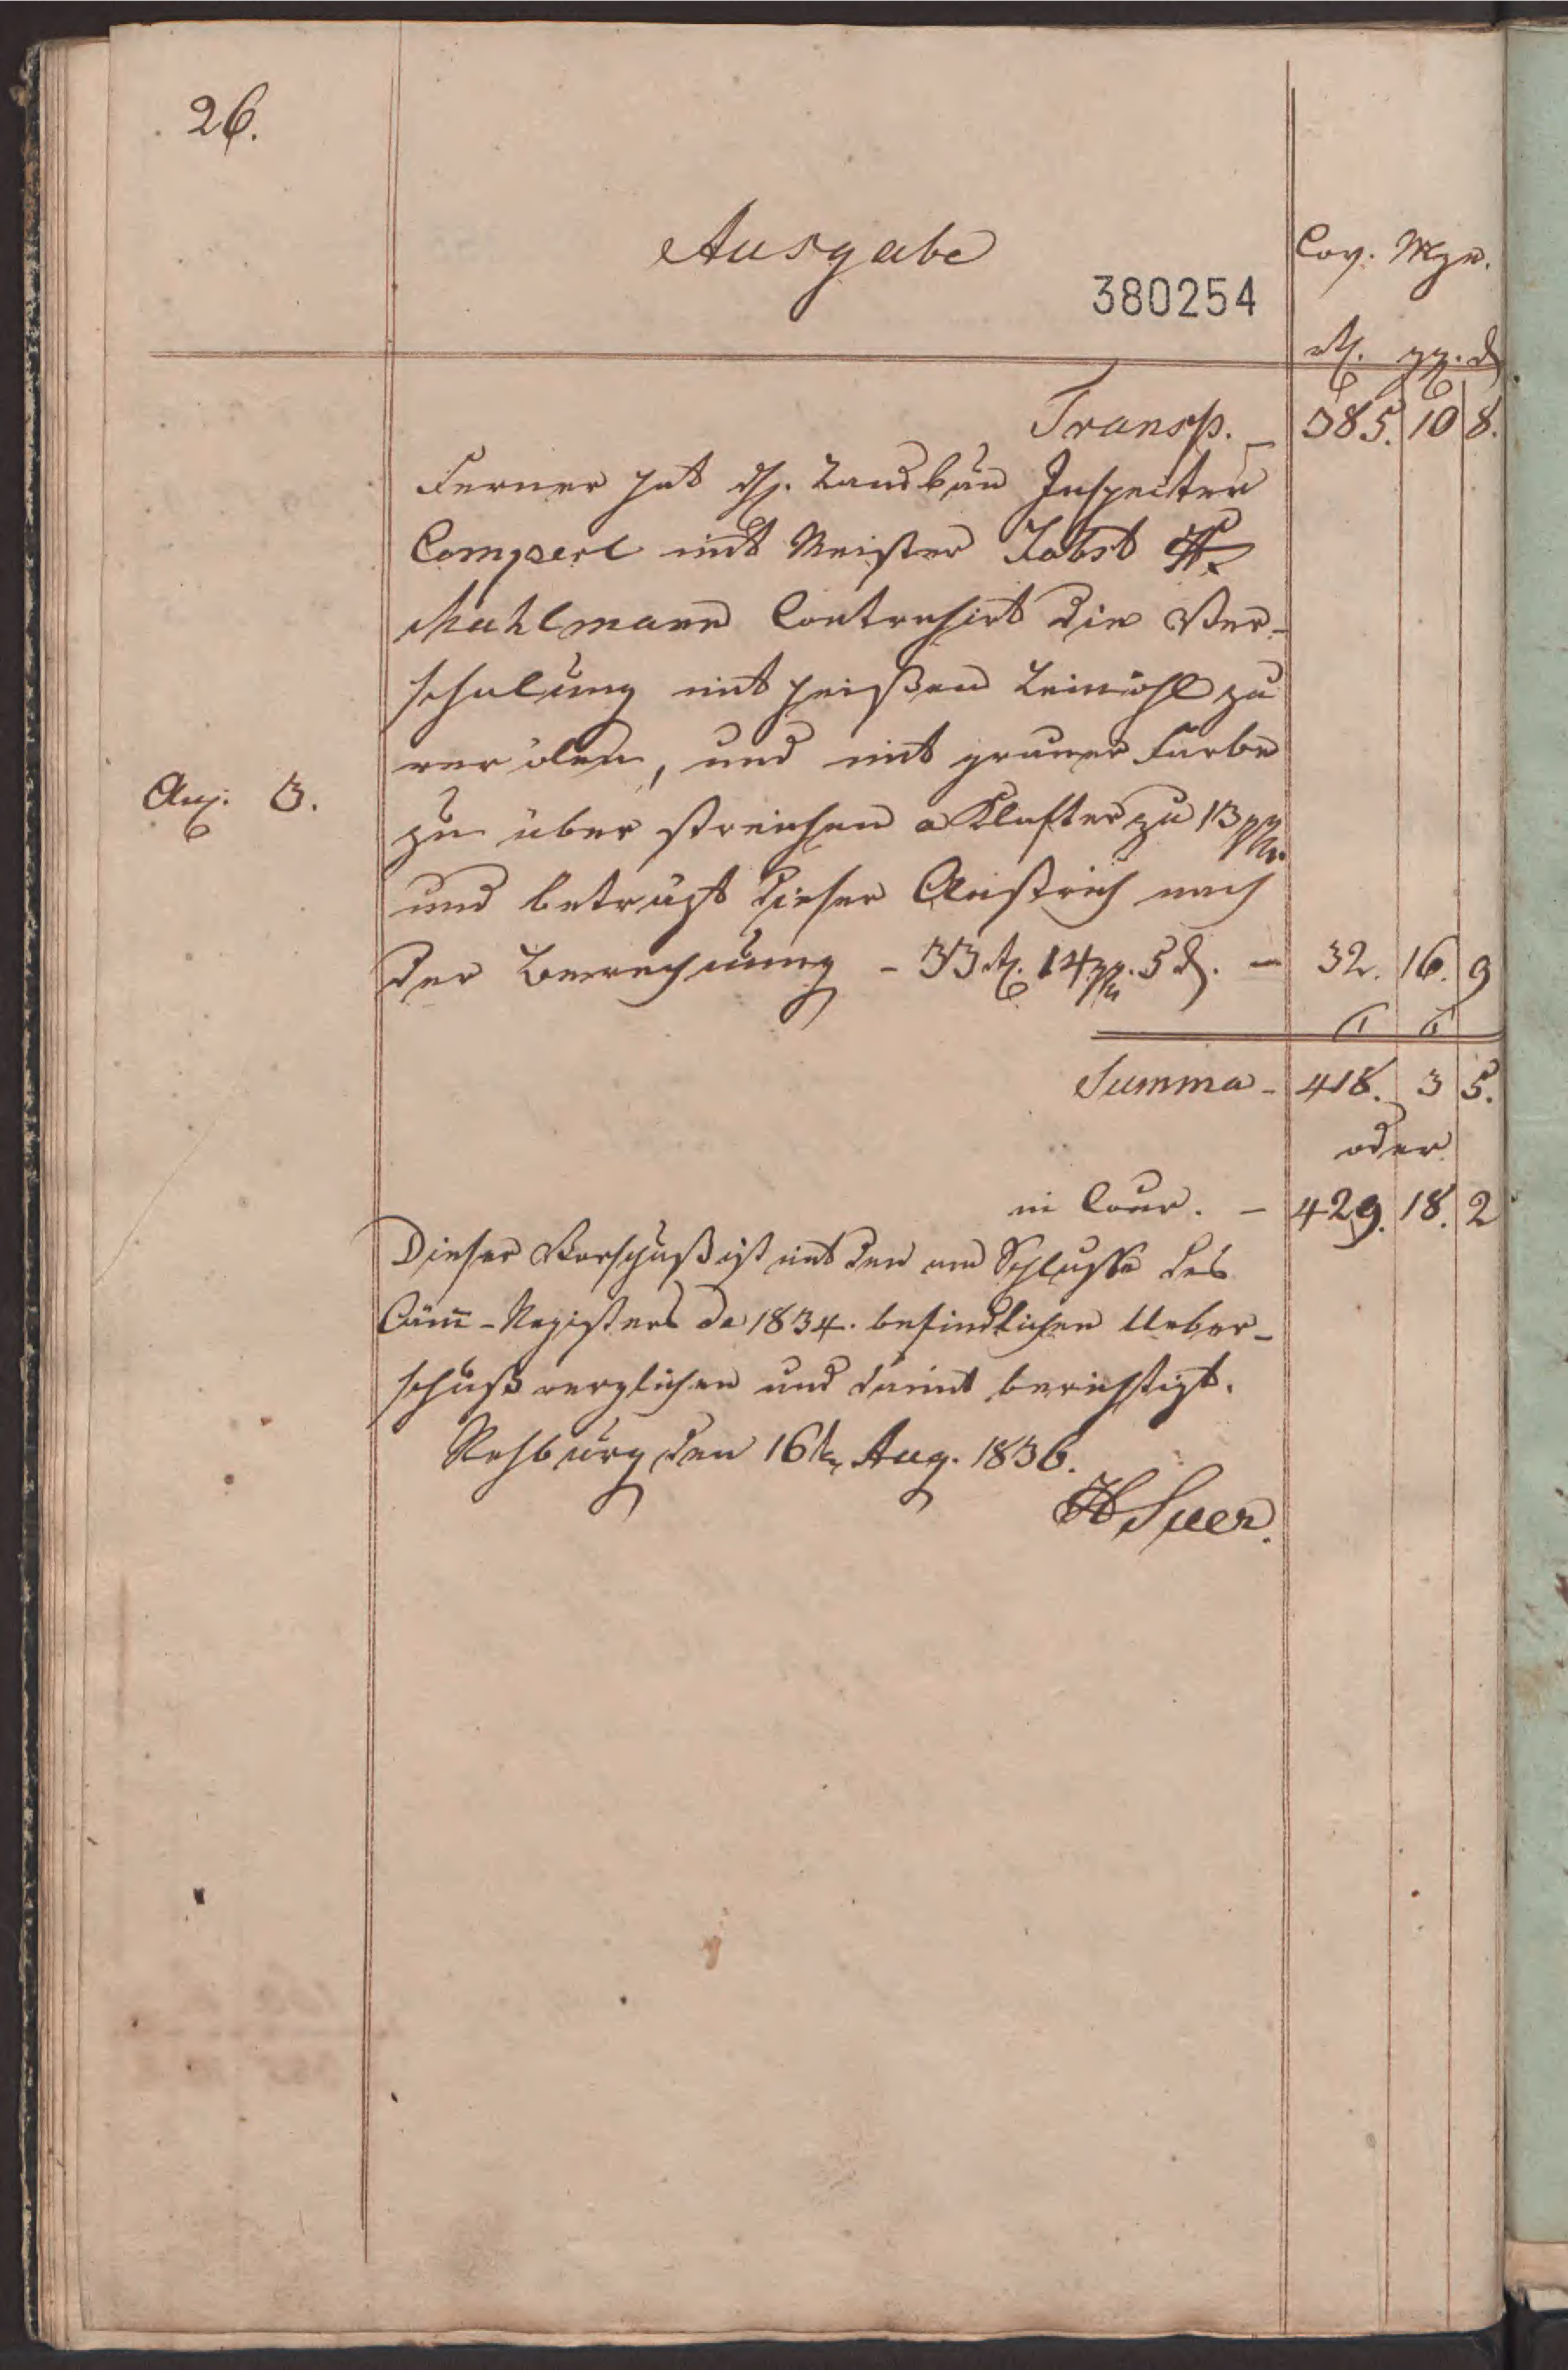 26.
Ausgabe
380254
Cov. Mze.
rt. gg. d
Transp. – 385. 10 8.
Ferner hat H. Landbau Inspecter
Comperl mit Meister Jobst
Mahlmann Contrahirt die Ver-
schalung mit heißen Leinöhl zu
verölen, und mit gruner Farbe
Anz. 3.
zu über streichen a Klafter zu 13 ggr.
und betragt dieser Anstrich nach
der Berechnung – 33 rt. 14 ggr. 5 d. – 32. 16. 9
Summa – 418. 3 5.
oder
in Cour. – 429. 18. 2
Dieser Vorschuß ist mit den am Schlusse des
Cäm̄-Registers de 1834. befindlichen Ueber-
schuß verglichen und damit berichtigt.
Rehburg den 16t Aug. 1836.
H Suer.